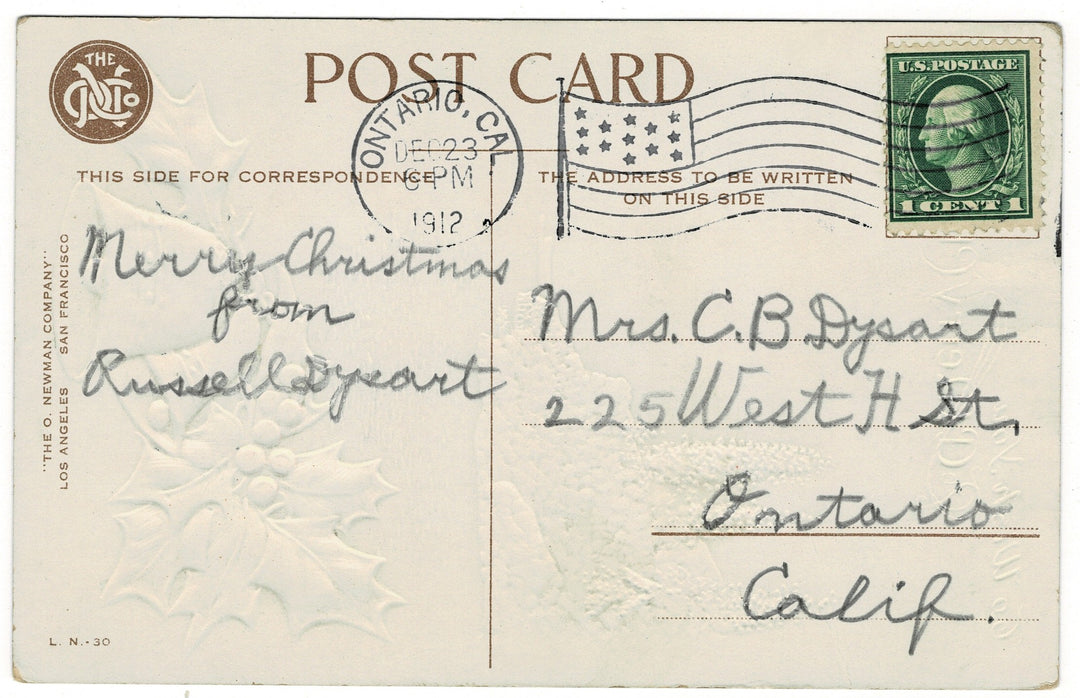 THE
NCo
POST CARD
ONTARIO, CAL.
DEC 23
6 PM
1912
U.S. POSTAGE
1 CENT 1
THIS SIDE FOR CORRESPONDENCE
THE ADDRESS TO BE WRITTEN
ON THIS SIDE
"THE O. NEWMAN COMPANY"
LOS ANGELES SAN FRANCISCO
Merry Christmas
from
Russell Dysart
Mrs. C. B. Dysart
225 West H St,
Ontario
Calif.
L. N.-30